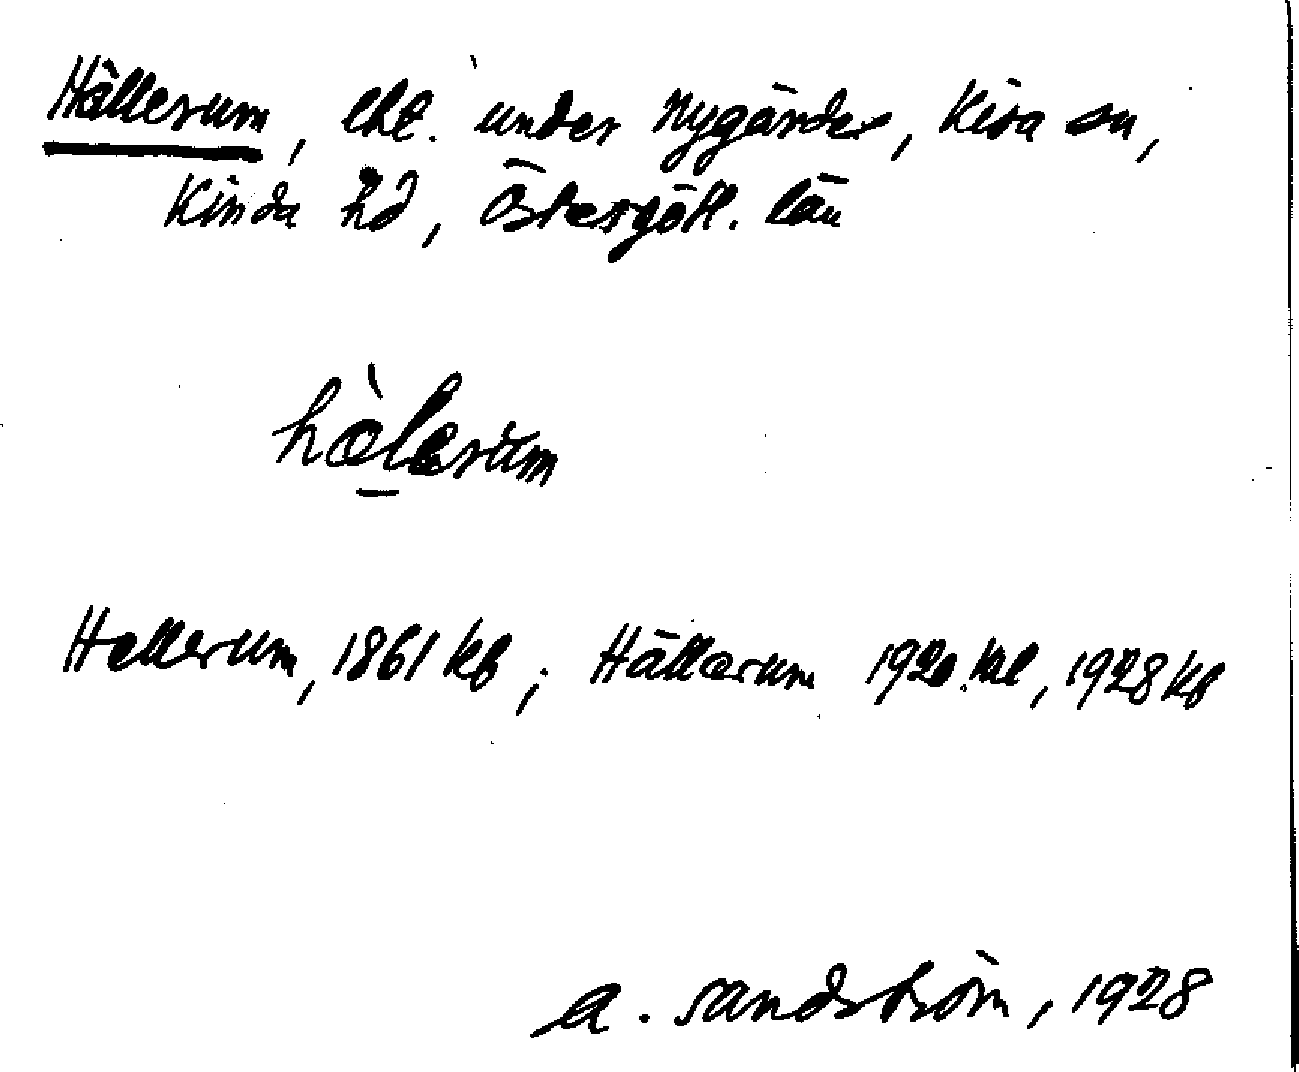 Hällerum, lht. under Nygärdes, Kisa sn,
Kinda hd, Östergötl. län
hæ̀lerum
Hellerum, 1861 kb; Hällerum 1920 ml, 1928 kb
A. Sandström, 1928